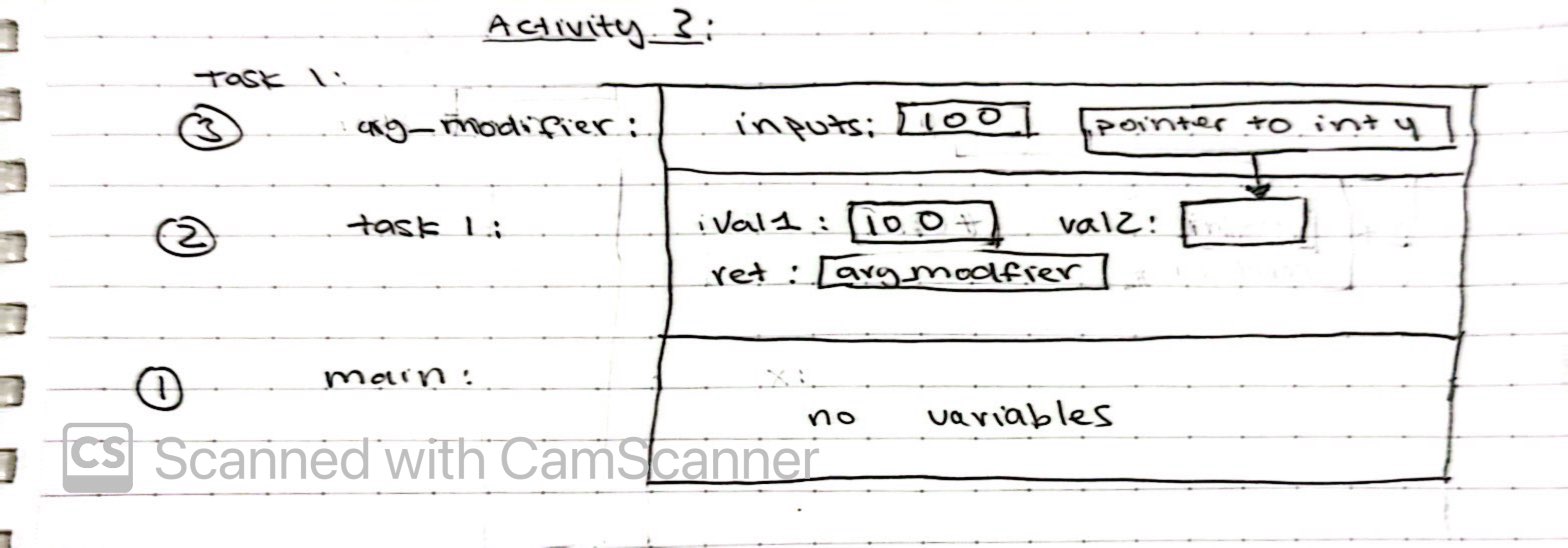 Activity 3:
Task 1:
③ arg_modifier: inputs: 100 pointer to int y
② task 1: ival1: 100 val2:
ret: arg_modfier
① main:
no variables
CS Scanned with CamScanner